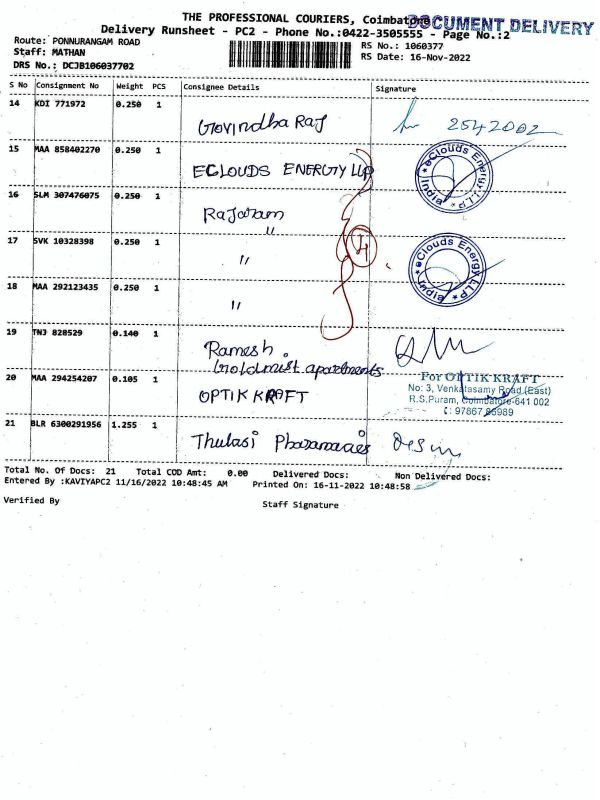 THE PROFESSIONAL COURIERS, Coimbatore
DOCUMENT DELIVERY
Delivery Runsheet - PC2 - Phone No.:0422-3505555 - Page No.:2
Route: PONNURANGAM ROAD
RS No.: 1060377
Staff: MATHAN
RS Date: 16-Nov-2022
DRS No.: DCJB106037702
S No Consignment No Weight PCS Consignee Details Signature
14 KDI 771972 0.250 1
Govindha Raj 2542002
15 MAA 858402270 0.250 1
ECLOUDS ENERGY LLP
eClouds Energy LLP India
16 SLM 307476075 0.250 1
Rajaram
"
17 SVK 10328398 0.250 1
"
4
eClouds Energy LLP India
18 MAA 292123435 0.250 1
"
19 TNJ 828529 0.140 1
Ramesh.
Goldmist apartments
20 MAA 294254207 0.105 1
OPTIK KRAFT
For OPTIK KRAFT
No: 3, Venkatasamy Road (East)
R.S.Puram, Coimbatore-641 002
21 BLR 6300291956 1.255 1
Thulasi
Total No. Of Docs: 21 Total COD Amt: 0.00 Delivered Docs: Non Delivered Docs:
Entered By :KAVIYAPC2 11/16/2022 10:48:45 AM Printed On: 16-11-2022 10:48:58
Verified By Staff Signature